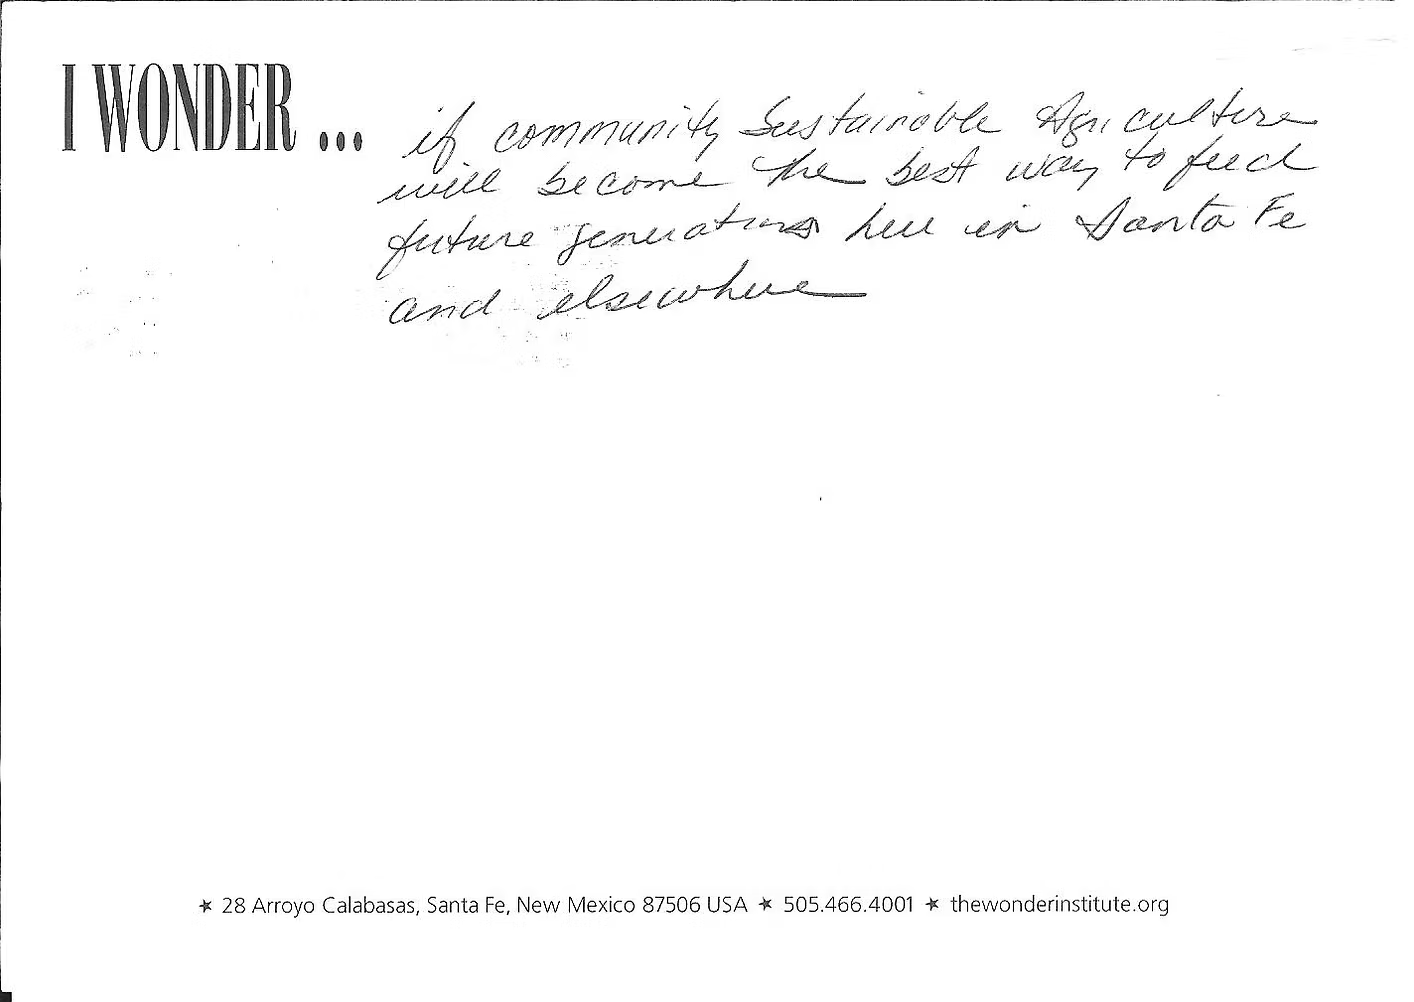 I WONDER ... if community Sustainable Agriculture
will become the best way to feed
future generations here in Santa Fe
and elsewhere
★ 28 Arroyo Calabasas, Santa Fe, New Mexico 87506 USA ★ 505.466.4001 ★ thewonderinstitute.org